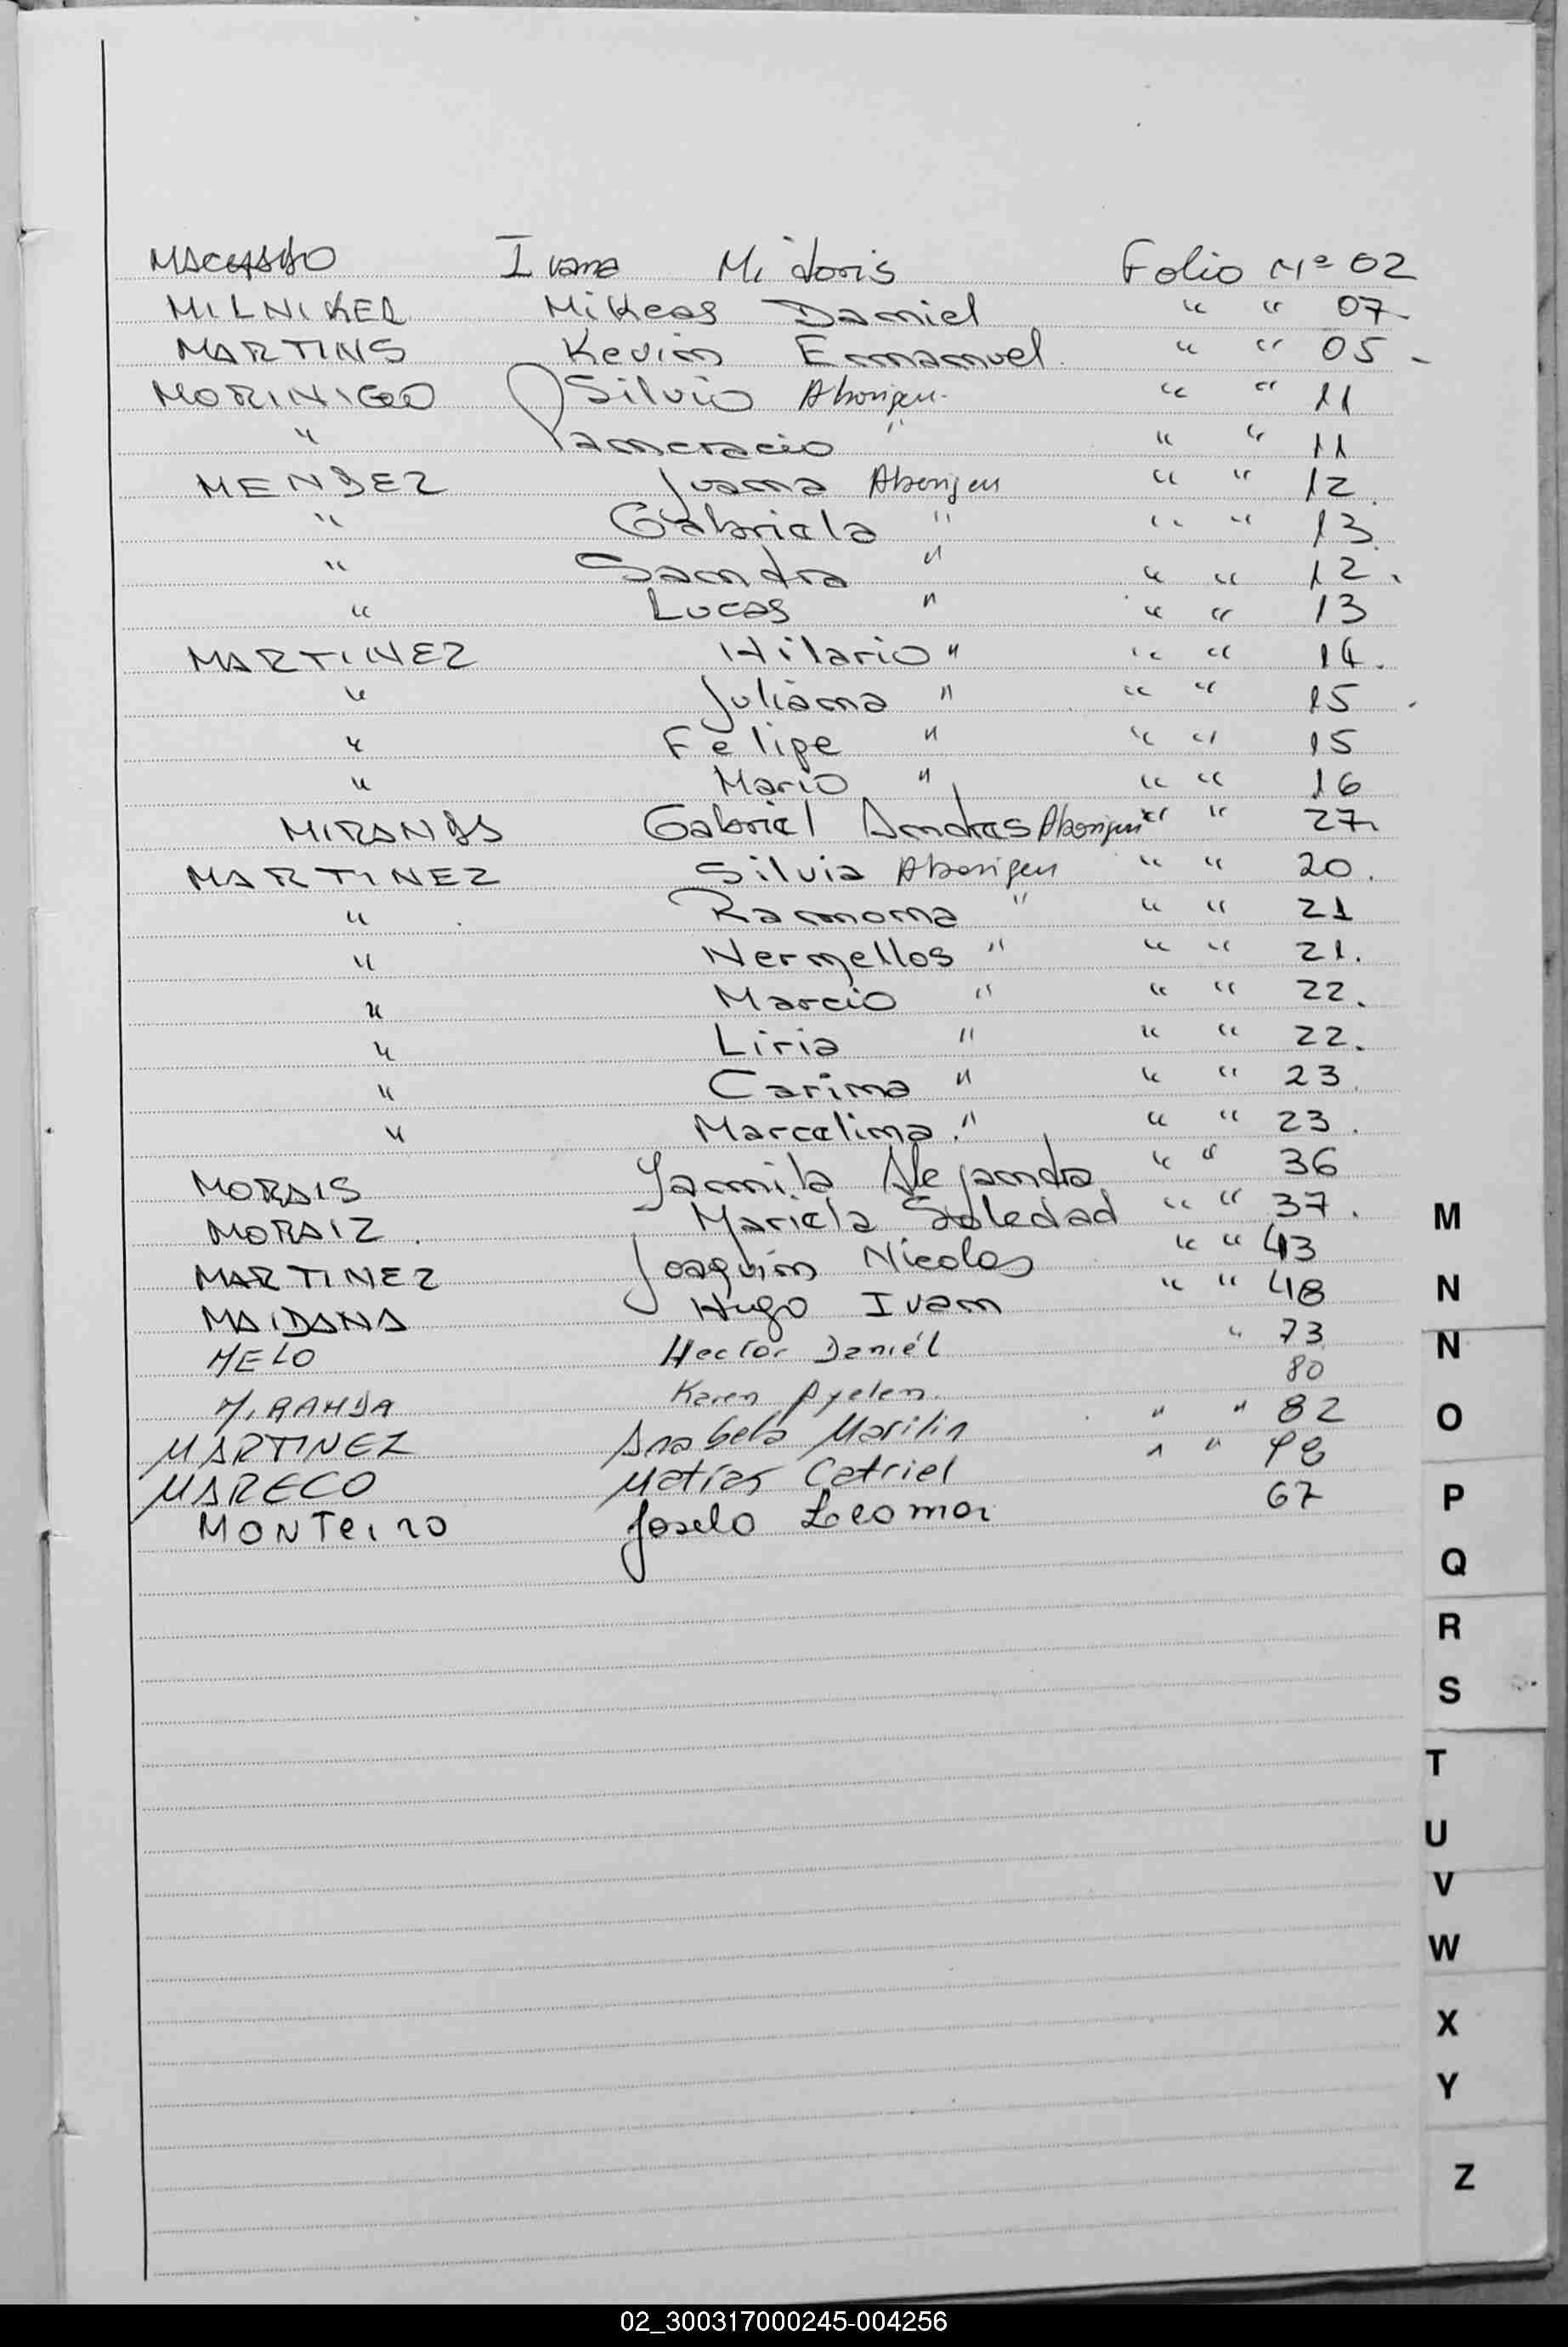 Ivana Midoris Folio Nº 02
MILNIKEL Mikeas Daniel " " 07
MARTINS Kevin Emmanuel " " 05
MORINIGO Silvio Aborigen " " 11
" Pancracio " " " 11
MENDEZ Juana Aborigen " " 12
" Gabriela " " " 13
" Sandra " " " 12
" Lucas " " " 13
MARTINEZ Hilario " " " 14
" Juliana " " " 15
" Felipe " " " 15
" Mario " " " 16
MIRANDA Gabriel Andres Aborigen " " 27
MARTINEZ Silvia Aborigen " " 20
" Ramona " " " 21
" Nermellos " " " 21
" Marcio " " " 22
" Liria " " " 22
" Carina " " " 23
" Marcelina " " " 23
MORAIS Yamila Alejandra " " 36
MORAIZ Mariela Soledad " " 37
MARTINEZ Joaquin Nicolas " " 43
MAIDANA Hugo Ivan " " 48
MELO Hector Daniél " 73
MIRANDA Karen Ayelen 80
MARTINEZ Anabela Marilin " " 82
MARECO Matías Catriel " " 98
MONTeiro Joselo Leomar 67
M
N
N
O
P
Q
R
S
T
U
V
W
X
Y
Z
02_300317000245-004256